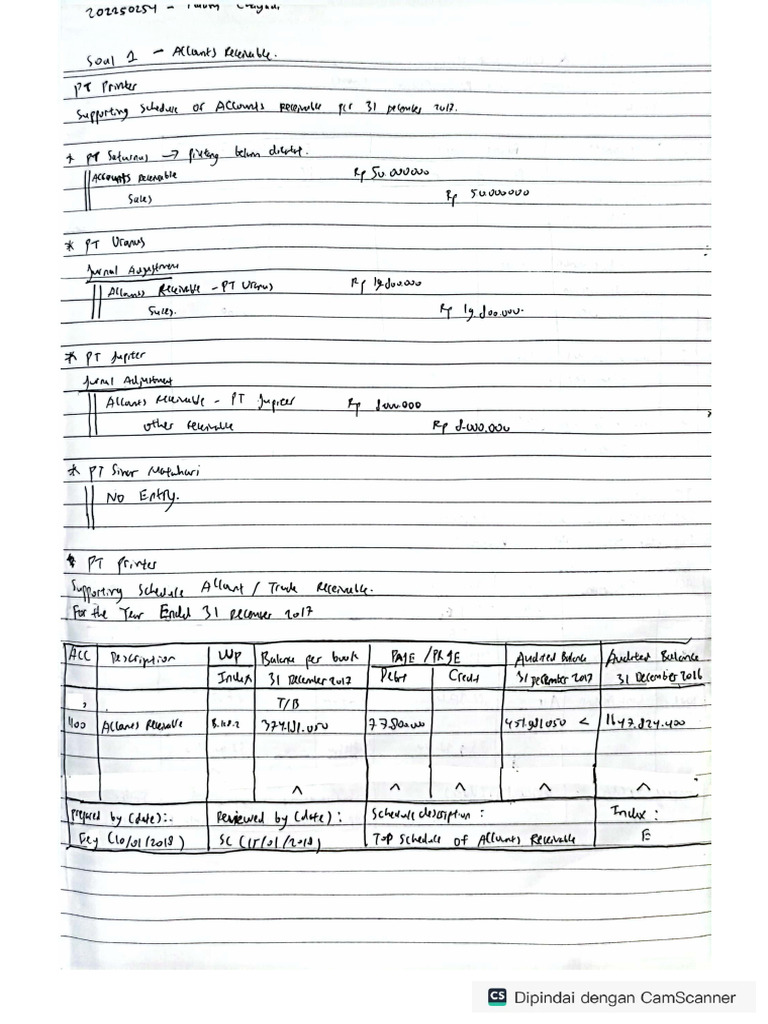 202250254 -
Soal 1 - Accounts Receivable.
PT Printer
Supporting Schedule of Accounts Receivable per 31 December 2017.
* PT Saturnus → piutang belum dicatat.
Accounts Receivable Rp 50.000.000
Sales Rp 50.000.000
* PT Uranus
Jurnal Adjustment
Accounts Receivable - PT Uranus Rp 19.800.000
Sales. Rp 19.800.000.
* PT Jupiter
Jurnal Adjustment
Accounts Receivable - PT Jupiter Rp 8.000.000
Other receivable Rp 8.000.000
* PT Sinar Matahari
No Entry.
* PT Printer
Supporting Schedule Account / Trade Receivable.
For the Year Ended 31 December 2017
ACC Description Wp Balance per book PAJE / PRJE Audited Balance Audited Balance
Index 31 December 2017 Debt Credit 31 December 2017 31 December 2016
T/B
1100 Accounts Receivable 374.181.050 77.800.000 451.981.050 < 1.647.824.400
^ ^ ^ ^ ^
Prepared by (date): Reviewed by (date): Schedule description: Index:
(10/01/2018) SC (15/01/2018) TOP Schedule of Accounts Receivable E
CS Dipindai dengan CamScanner